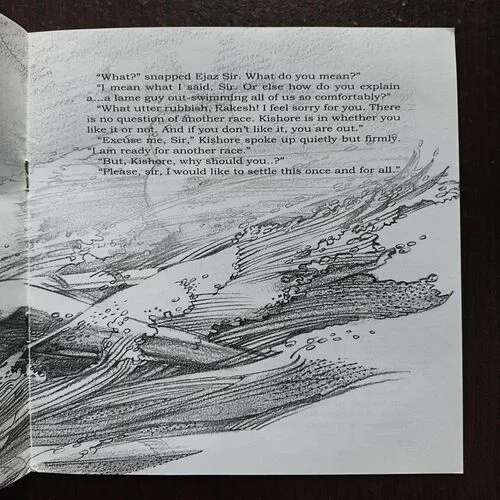 "What?" snapped Ejaz Sir. What do you mean?"
"I mean what I said, Sir. Or else how do you explain
a...a lame guy out-swimming all of us so comfortably?"
"What utter rubbish, Rakesh! I feel sorry for you. There
is no question of another race. Kishore is in whether you
like it or not. And if you don't like it, you are out."
"Excuse me, Sir," Kishore spoke up quietly but firmly.
"I am ready for another race."
"But, Kishore, why should you..?"
"Please, sir, I would like to settle this once and for all."